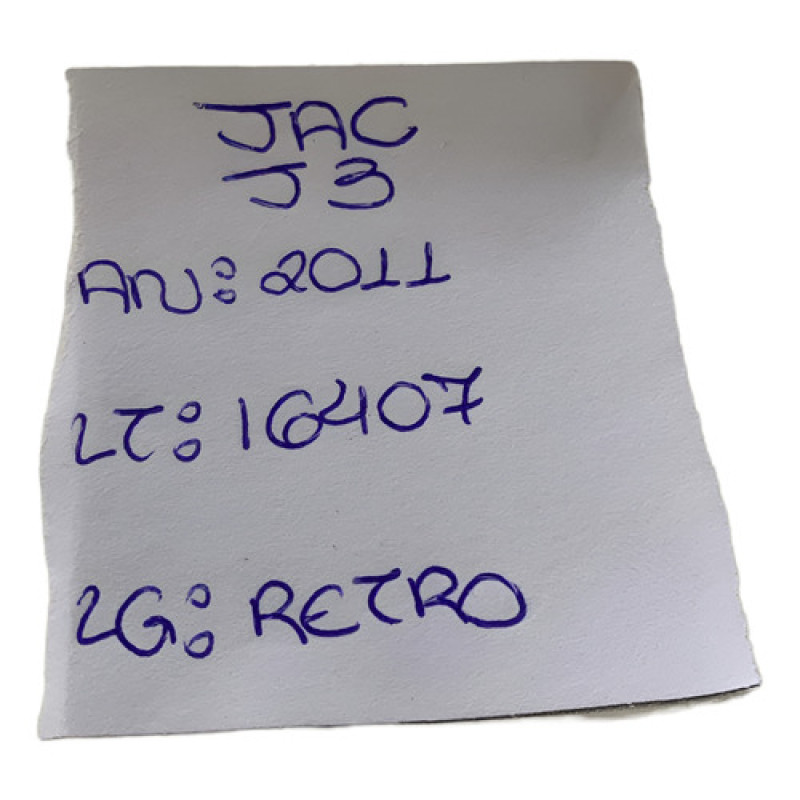 JAC
J3
AN: 2011
LT: 16407
LG: RETRO